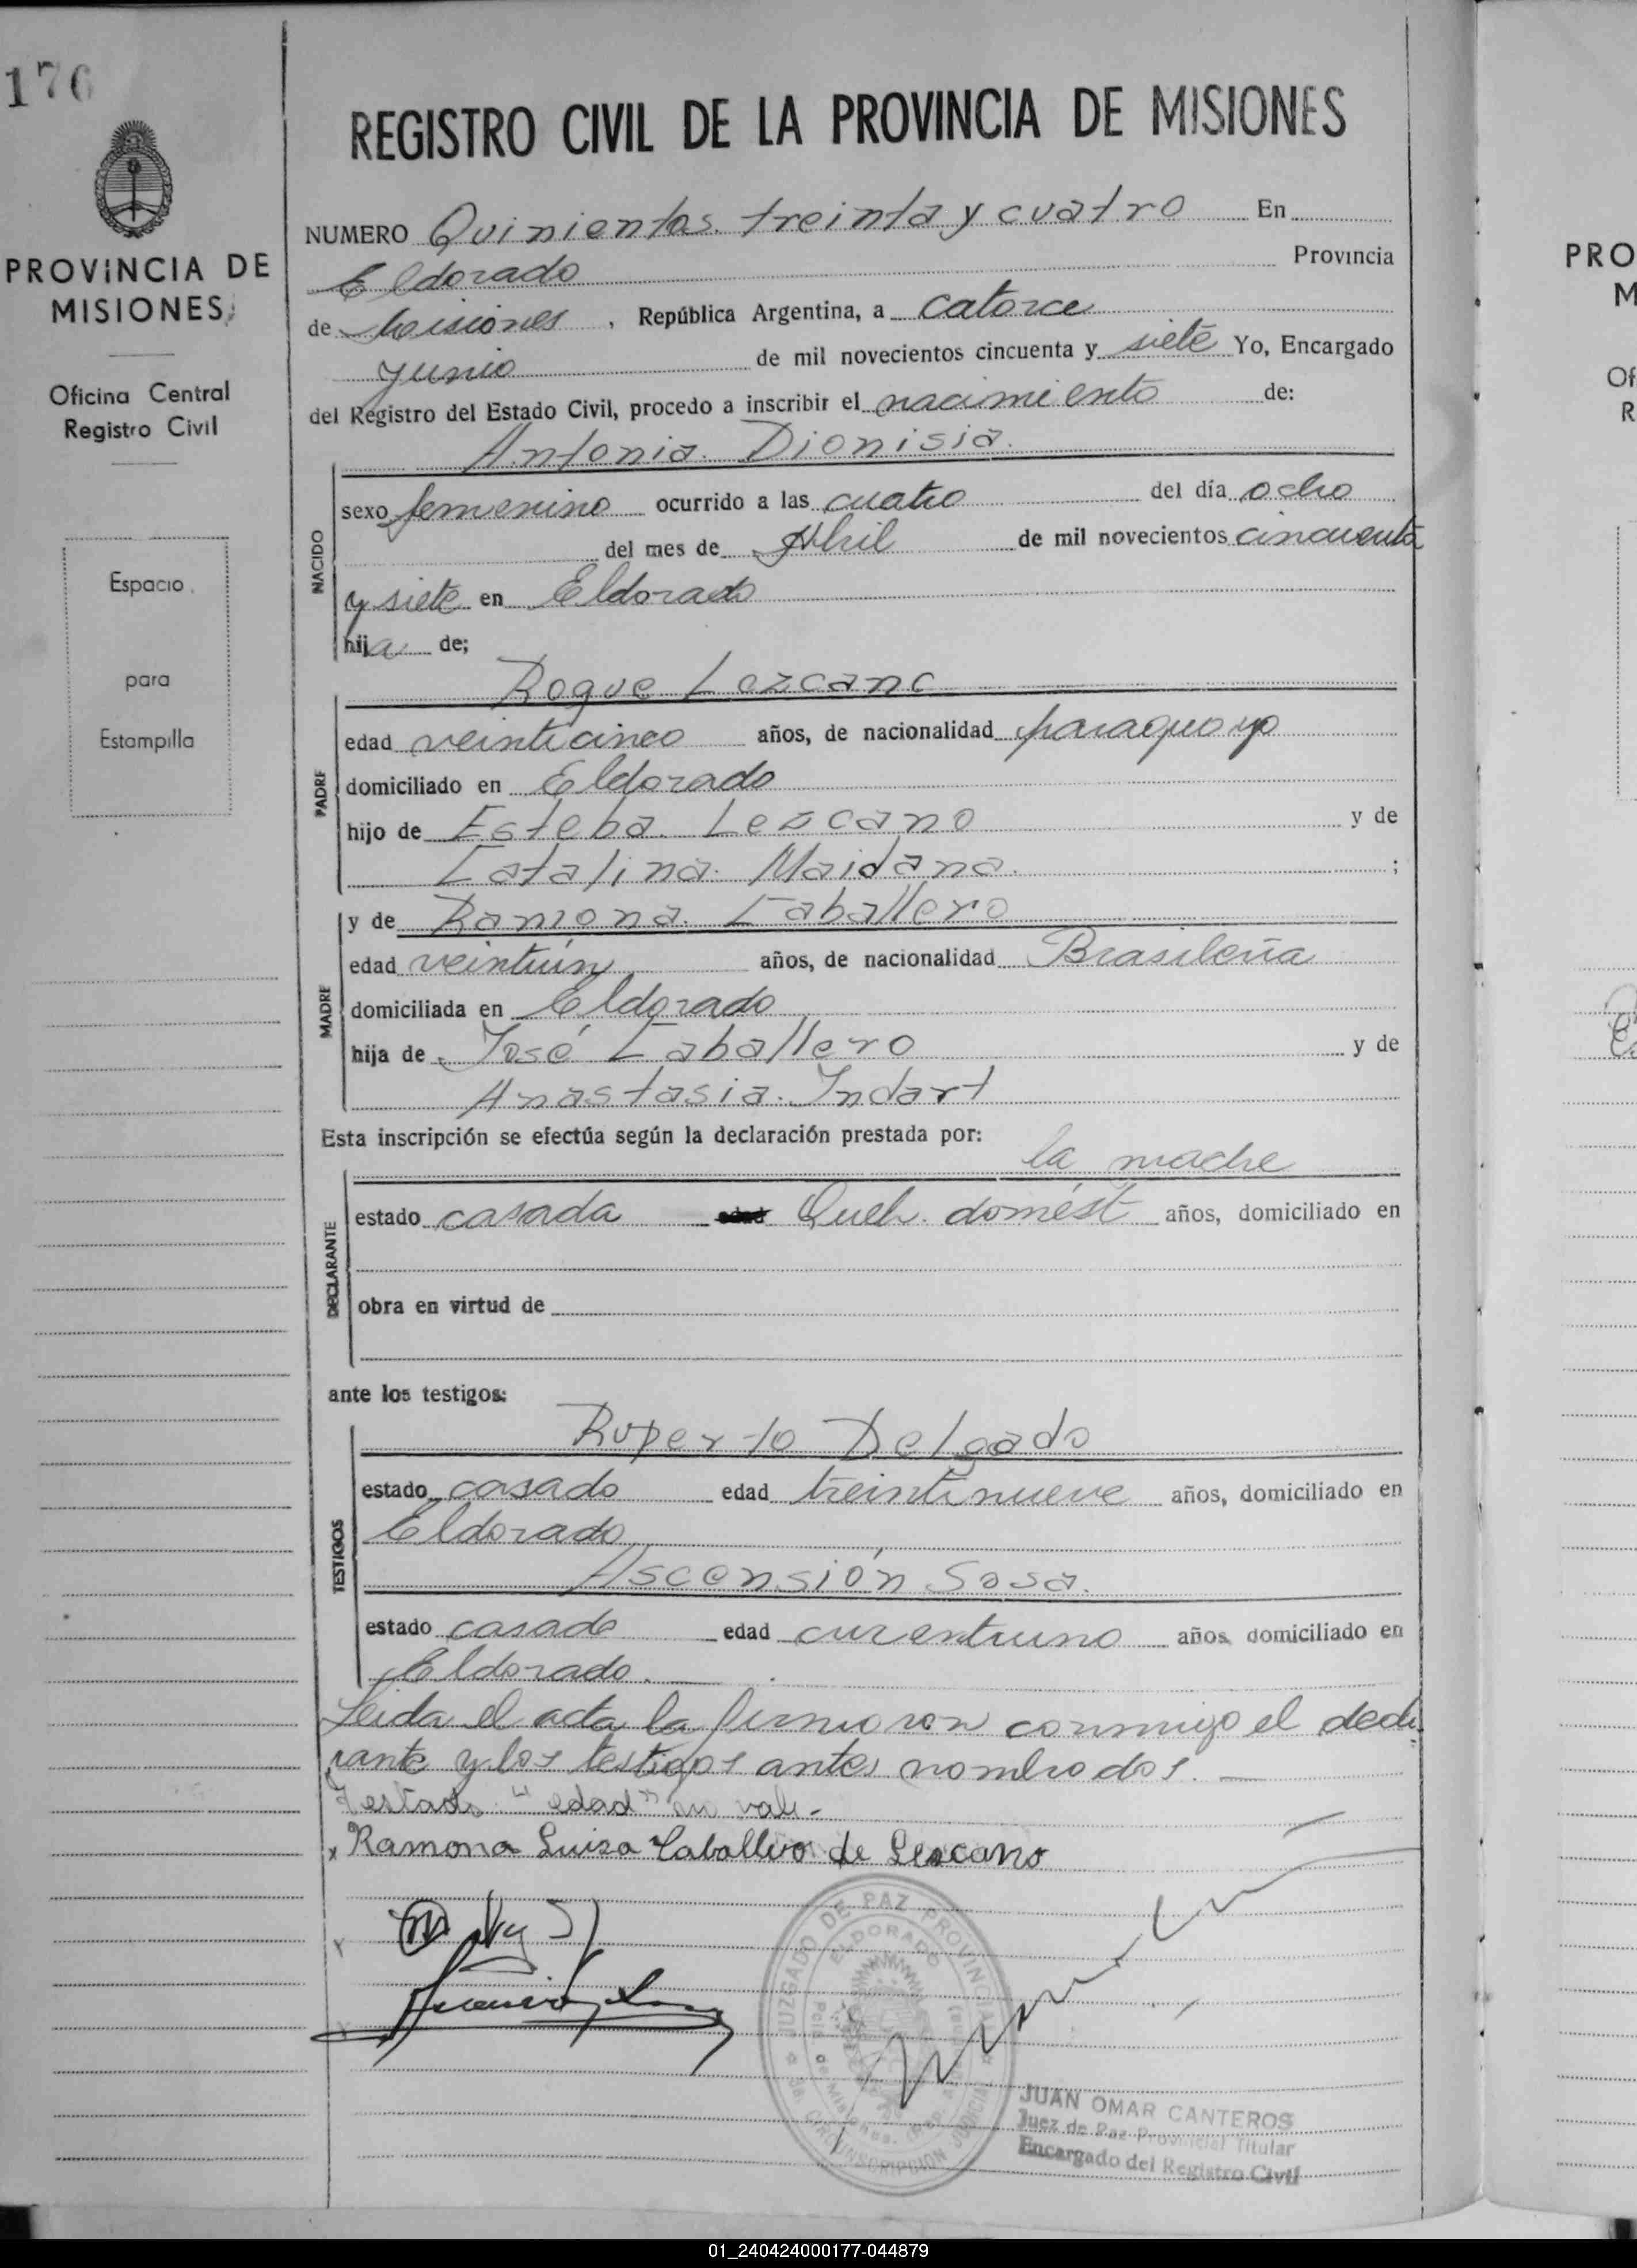 176
PROVINCIA DE
MISIONES
Oficina Central
Registro Civil
Espacio
para
Estampilla
REGISTRO CIVIL DE LA PROVINCIA DE MISIONES
NUMERO Quinientos treinta y cuatro En
Eldorado Provincia
de Misiones, República Argentina, a catorce
Junio de mil novecientos cincuenta y siete Yo, Encargado
del Registro del Estado Civil, procedo a inscribir el nacimiento de:
Antonia Dionisia.
NACIDO
sexo femenino ocurrido a las cuatro del día ocho
del mes de Abril de mil novecientos cincuenta
y siete en Eldorado
hija de;
Roque Lezcano
PADRE
edad veinticinco años, de nacionalidad paraguayo
domiciliado en Eldorado
hijo de Esteba Lezcano y de
Catalina Maidana. ;
MADRE
y de Ramona Caballero
edad veintiún años, de nacionalidad Brasileña
domiciliada en Eldorado
hija de José Caballero y de
Anastasia Indart
Esta inscripción se efectúa según la declaración prestada por:
la madre
DECLARANTE
estado casada edad Queh. domést años, domiciliado en
obra en virtud de
ante los testigos:
Ruperto Delgado
TESTIGOS
estado casado edad treintinueve años, domiciliado en
Eldorado
Ascensión Sosa.
estado casado edad curentiuno años, domiciliado en
Eldorado.
Leida el acta la firmaron conmigo el decla
rante y los testigos antes nombrados. —
Testado "edad" no vale-
x Ramona Luisa Caballero de Lescano
x
JUZGADO DE PAZ PROVINCIAL
ELDORADO
CIRCUNSCRIPCION JUDICIAL
JUAN OMAR CANTEROS
Juez de Paz Provincial Titular
Encargado del Registro Civil
PRO
M
Of
R
01_240424000177-044879